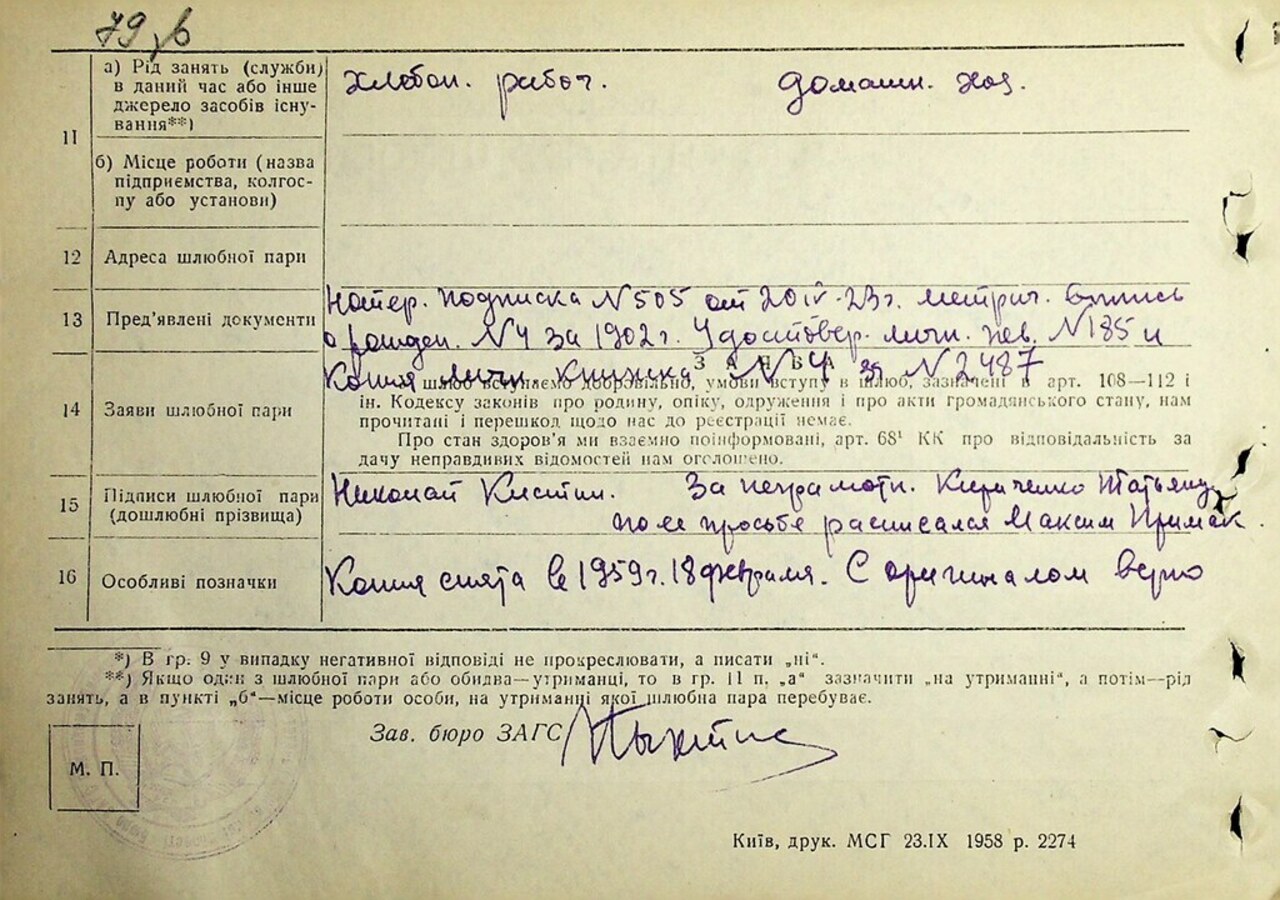 79 зв
11
а) Рід занять (служби)
в даний час або інше
джерело засобів існу-
вання**)
хлебоп. работ.
домашн. хоз.
б) Місце роботи (назва
підприємства, колгос-
пу або установи)
12
Адреса шлюбної пари
13
Пред'явлені документи
Нотер. подписка N 505 от 20 IV-23 г. метрич. выпись
о рожден. N 4 за 1902 г. Удостовер. личн. нев. N 185 и
Копия личн. книжка N 4 за N 2487
14
Заяви шлюбної пари
ЗАЯВА
шлюб вступаємо добровільно, умови вступу в шлюб, зазначені в арт. 108—112 і
ін. Кодексу законів про родину, опіку, одруження і про акти громадянського стану, нам
прочитані і перешкод щодо нас до реєстрації немає.
Про стан здоров'я ми взаємно поінформовані, арт. 68¹ КК про відповідальність за
дачу неправдивих відомостей нам оголошено.
15
Підписи шлюбної пари
(дошлюбні прізвища)
Николай За неграмотн. Кириченко Татьяну
по ее просьбе расписался Максим Примак.
16
Особливі позначки
Копия снята в 1959 г. 18 февраля. С оригиналом верно
*) В гр. 9 у випадку негативної відповіді не прокреслювати, а писати „ні".
**) Якщо один з шлюбної пари або обидва—утриманці, то в гр. 11 п. „а" зазначити „на утриманні", а потім—рід
занять, а в пункті „б"—місце роботи особи, на утриманні якої шлюбна пара перебуває.
Зав. бюро ЗАГС
М. П.
Київ, друк. МСГ 23.IX 1958 р. 2274